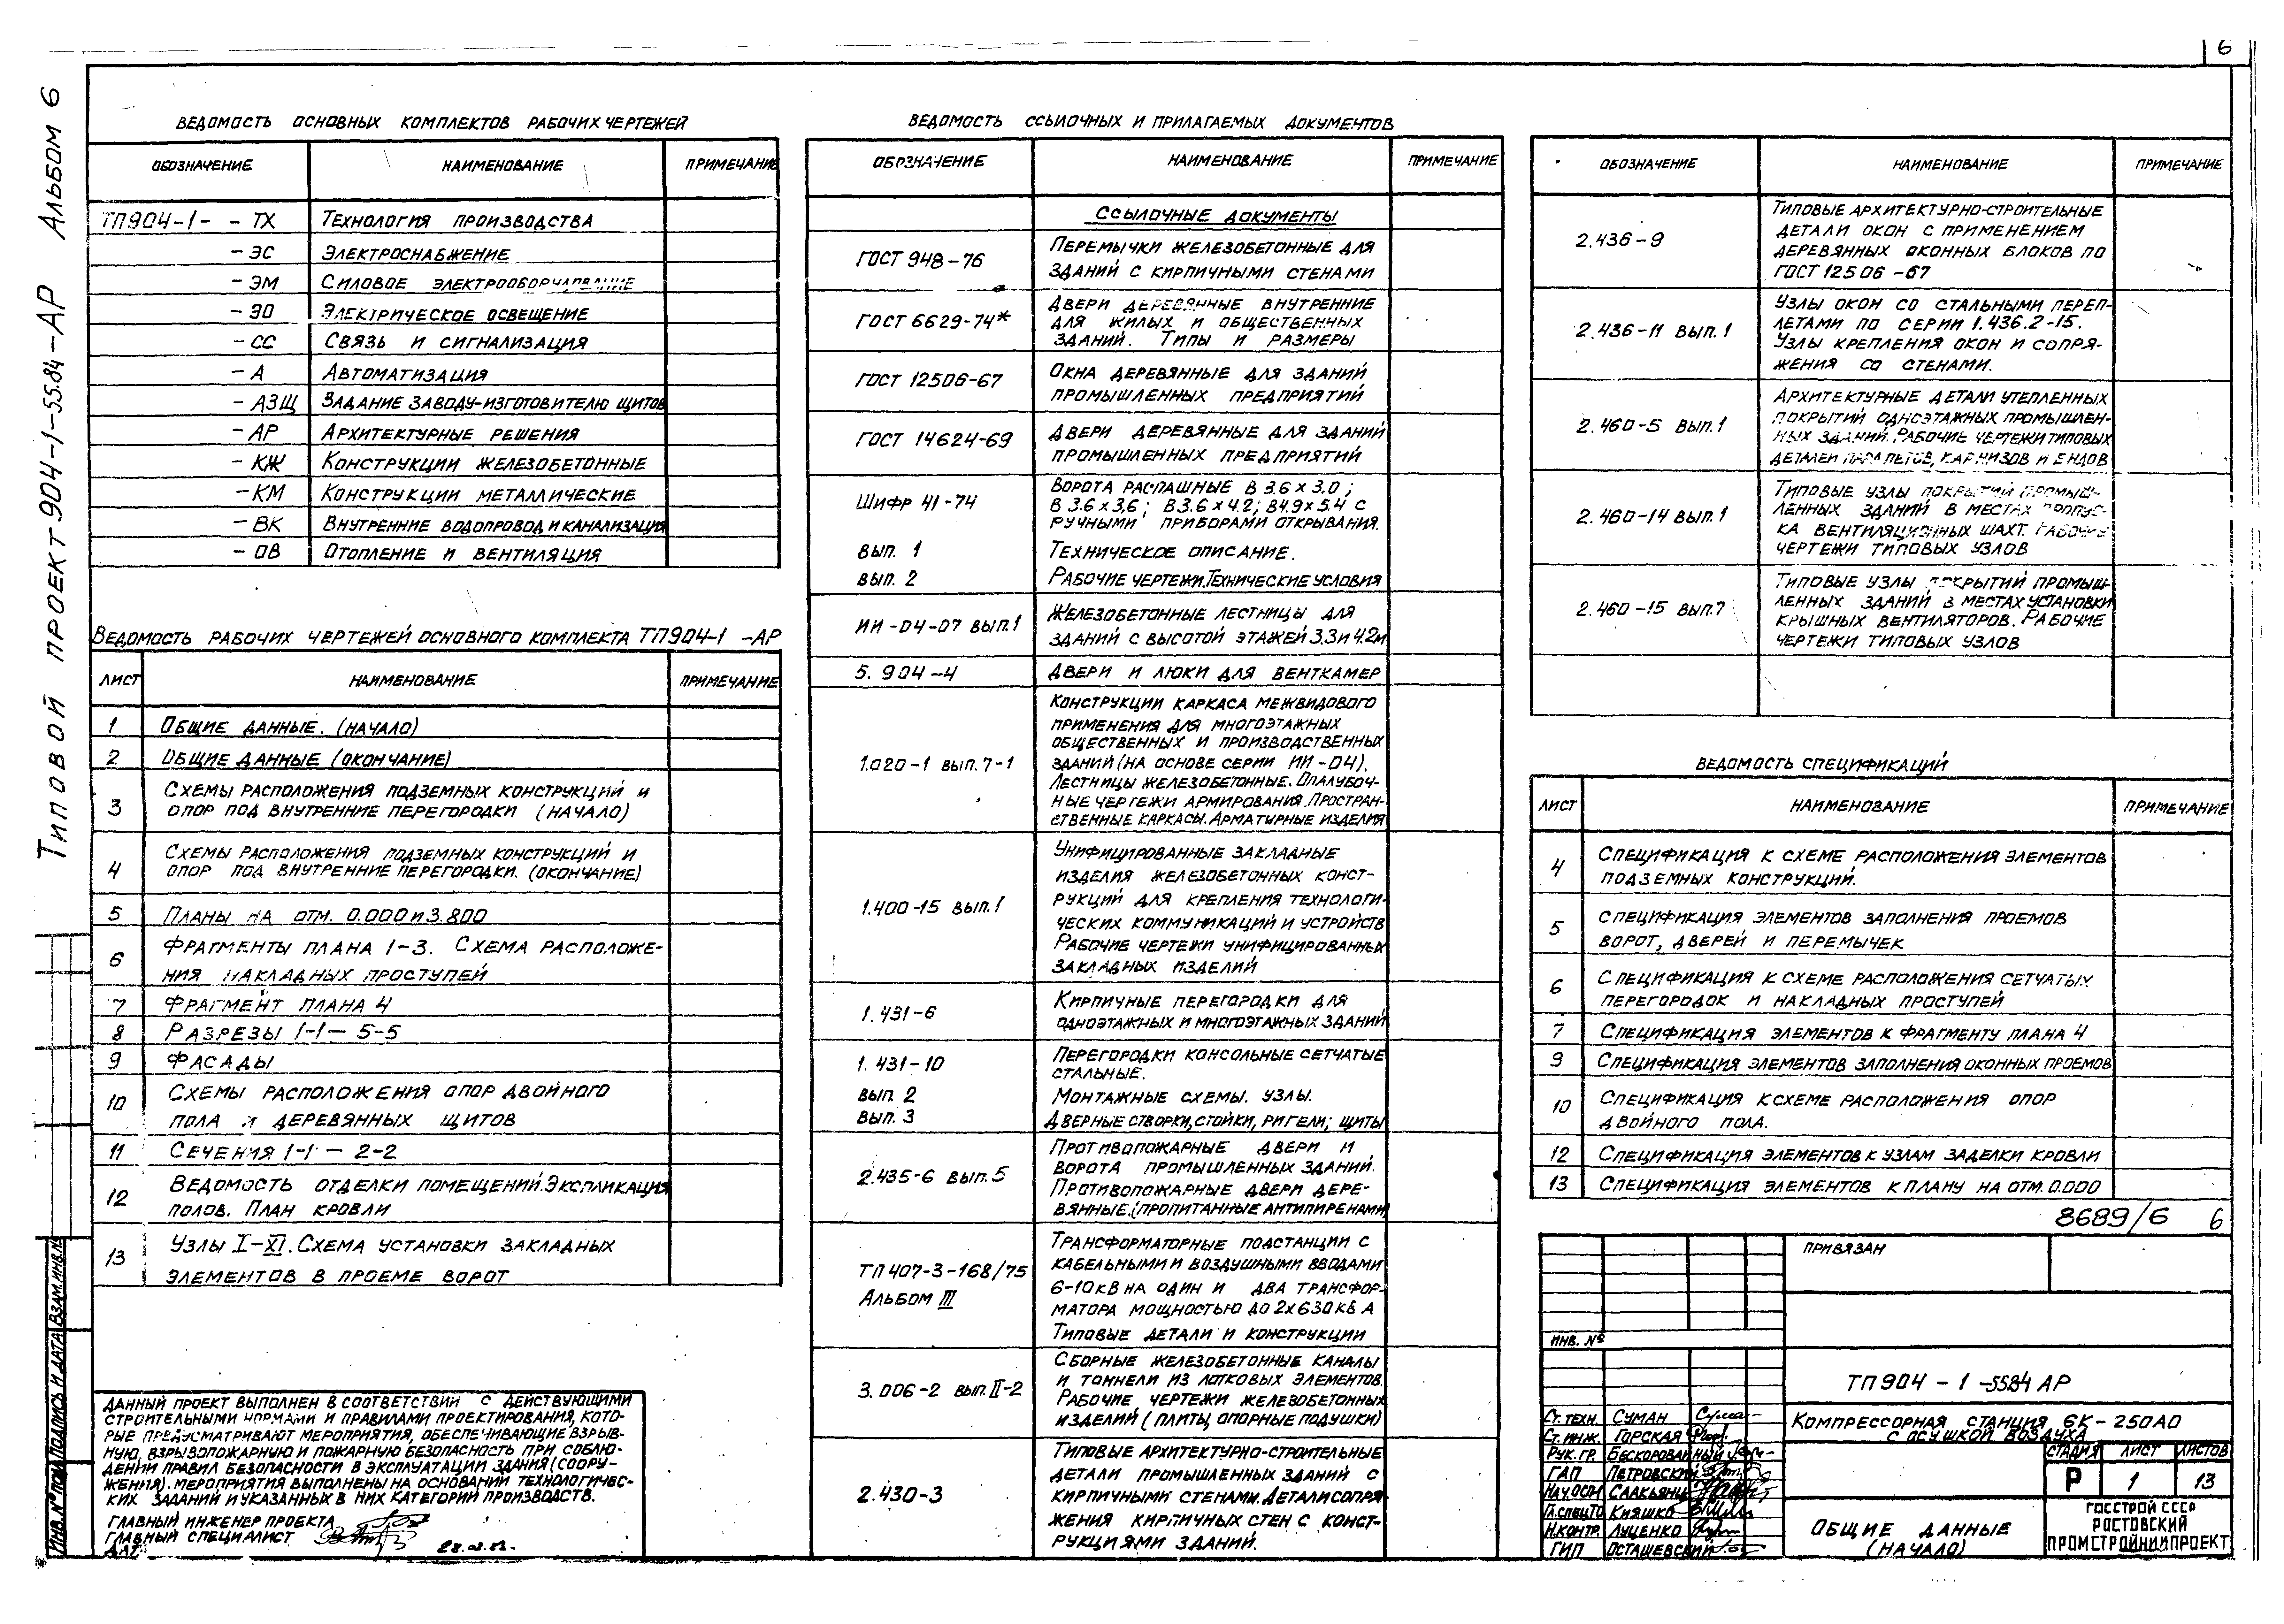 6
Типовой проект 904-1-55.84-АР Альбом 6
Ведомость основных комплектов рабочих чертежей
Обозначение Наименование Примечание
ТП904-1- -ТХ Технология производства
-ЭС Электроснабжение
-ЭМ Силовое электрооборудование
-ЭО Электрическое освещение
-СС Связь и сигнализация
-А Автоматизация
-АЗЩ Задание заводу-изготовителю щитов
-АР Архитектурные решения
-КЖ Конструкции железобетонные
-КМ Конструкции металлические
-ВК Внутренние водопровод и канализация
-ОВ Отопление и вентиляция
Ведомость рабочих чертежей основного комплекта ТП904-1 -АР
Лист Наименование Примечание
1 Общие данные. (начало)
2 Общие данные (окончание)
3 Схемы расположения подземных конструкций и
опор под внутренние перегородки (начало)
4 Схемы расположения подземных конструкций и
опор под внутренние перегородки. (окончание)
5 Планы на отм. 0.000 и 3.800
6 Фрагменты плана 1-3. Схема расположе-
ния накладных проступей
7 Фрагмент плана 4
8 Разрезы 1-1 - 5-5
9 Фасады
10 Схемы расположения опор двойного
пола и деревянных щитов
11 Сечения 1-1 - 2-2
12 Ведомость отделки помещений. Экспликация
полов. План кровли
13 Узлы I-XI. Схема установки закладных
элементов в проеме ворот
Данный проект выполнен в соответствии с действующими
строительными нормами и правилами проектирования, кото-
рые предусматривают мероприятия, обеспечивающие взрыв-
ную, взрывопожарную и пожарную безопасность при соблю-
дении правил безопасности в эксплуатации здания (соору-
жения). Мероприятия выполнены на основании технологичес-
ких заданий и указанных в них категорий производств.
Главный инженер проекта
Главный специалист
Дата
Инв.№ подл. Подпись и дата Взам.инв.№
Ведомость ссылочных и прилагаемых документов
Обозначение Наименование Примечание
Ссылочные документы
ГОСТ 948-76 Перемычки железобетонные для
зданий с кирпичными стенами
ГОСТ 6629-74* Двери деревянные внутренние
для жилых и общественных
зданий. Типы и размеры
ГОСТ 12506-67 Окна деревянные для зданий
промышленных предприятий
ГОСТ 14624-69 Двери деревянные для зданий
промышленных предприятий
Шифр 41-74 Ворота распашные В 3.6×3.0;
В 3.6×3.6; В3.6×4.2; В4.9×5.4 с
ручными приборами открывания.
вып. 1 Техническое описание.
вып. 2 Рабочие чертежи. Технические условия
ИИ-04-07 вып.1 Железобетонные лестницы для
зданий с высотой этажей 3.3 и 4.2м
5.904-4 Двери и люки для венткамер
1.020-1 вып.7-1 Конструкции каркаса межвидового
применения для многоэтажных
общественных и производственных
зданий (на основе серии ИИ-04).
Лестницы железобетонные. Опалубоч-
ные чертежи армирования. Простран-
ственные каркасы. Арматурные изделия
1.400-15 вып.1 Унифицированные закладные
изделия железобетонных конст-
рукций для крепления технологи-
ческих коммуникаций и устройств
Рабочие чертежи унифицированных
закладных изделий
1.431-6 Кирпичные перегородки для
одноэтажных и многоэтажных зданий
1.431-10 Перегородки консольные сетчатые
стальные.
вып. 2 Монтажные схемы. Узлы.
вып. 3 Дверные створки, стойки, ригели, щиты
2.435-6 вып.5 Противопожарные двери и
ворота промышленных зданий.
Противопожарные двери дере-
вянные. (пропитанные антипиренами)
ТП407-3-168/75 Трансформаторные подстанции с
Альбом III кабельными и воздушными вводами
6-10кВ на один и два трансфор-
матора мощностью до 2×630кВА
Типовые детали и конструкции
3.006-2 вып.II-2 Сборные железобетонные каналы
и тоннели из лотковых элементов.
Рабочие чертежи железобетонных
изделий (плиты, опорные подушки)
2.430-3 Типовые архитектурно-строительные
детали промышленных зданий с
кирпичными стенами. Детали сопря-
жения кирпичных стен с конст-
рукциями зданий.
Обозначение Наименование Примечание
2.436-9 Типовые архитектурно-строительные
детали окон с применением
деревянных оконных блоков по
ГОСТ 12506-67
2.436-11 вып.1 Узлы окон со стальными переп-
летами по серии 1.436.2-15.
Узлы крепления окон и сопря-
жения со стенами.
2.460-5 вып.1 Архитектурные детали утепленных
покрытий одноэтажных промышлен-
ных зданий. Рабочие чертежи типовых
деталей парапетов, карнизов и ендов
2.460-14 вып.1 Типовые узлы покрытий промыш-
ленных зданий в местах пропус-
ка вентиляционных шахт. Рабочие
чертежи типовых узлов
2.460-15 вып.7 Типовые узлы покрытий промыш-
ленных зданий в местах установки
крышных вентиляторов. Рабочие
чертежи типовых узлов
Ведомость спецификаций
Лист Наименование Примечание
4 Спецификация к схеме расположения элементов
подземных конструкций.
5 Спецификация элементов заполнения проемов
ворот, дверей и перемычек
6 Спецификация к схеме расположения сетчатых
перегородок и накладных проступей
7 Спецификация элементов к фрагменту плана 4
9 Спецификация элементов заполнения оконных проемов
10 Спецификация к схеме расположения опор
двойного пола.
12 Спецификация элементов к узлам заделки кровли
13 Спецификация элементов к плану на отм. 0.000
8689/6 6
Привязан
Инв. №
ТП904-1-55.84 АР
Компрессорная станция 6К-250АО
с осушкой воздуха
Ст. техн. Суман
Ст. инж. Горская
Рук. гр. Бескоровайный
ГАП Петровский
Нач. ОСП
Гл. спец ТО Княшко
Н. контр. Луценко
ГИП Осташевский
Стадия Лист Листов
Р 1 13
Общие данные
(начало)
Госстрой СССР
Ростовский
Промстройниипроект